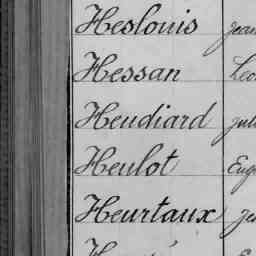 Heslouis Jean
Hessan Leo
Heudiard Juli
Heulot Eugè
Heurtaux Je